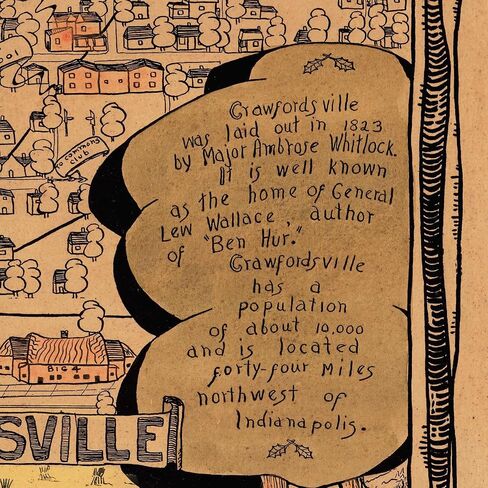 Crawfordsville
was laid out in 1823
by Major Ambrose Whitlock.
It is well known
as the home of General
Lew Wallace, author
of "Ben Hur."
Crawfordsville
has a
population
of about 10,000
and is located
forty-four Miles
northwest of
Indianapolis.
TO COMMONS
CLUB
BIG 4
SVILLE